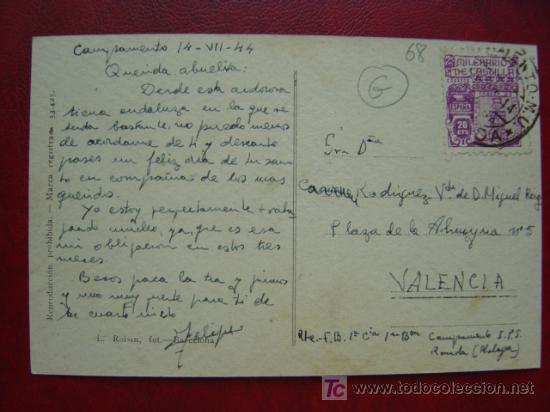 Campamento 14-VII-44
Querida abuelita:
Desde esta
tierra andaluza en la que se
suda bastante, no puedo menos
de acordarme de ti y desearte
pases un feliz día de tu santo
en compañía de los mas
queridos.
Yo estoy perfectamente +
mucho, ya, que es esa
mi obligacion en estos tres
meses.
Besos para la tia y primos
y uno muy fuerte para ti de
tu cuarto nieto
L. Roisin, fot.—Barcelona
Reproducción prohibida. — Marca registrada
68
G
MILENARIO
DE CASTILLA
20
CTS
Sra Dña
Carmen Rodriguez Vda de D. Miguel
Plaza de la nº 5
VALENCIA
Rte.- F.B. 1ª Cia 1er Bon Campamento I.P.S.
Ronda (Malaga)
TC todocoleccion